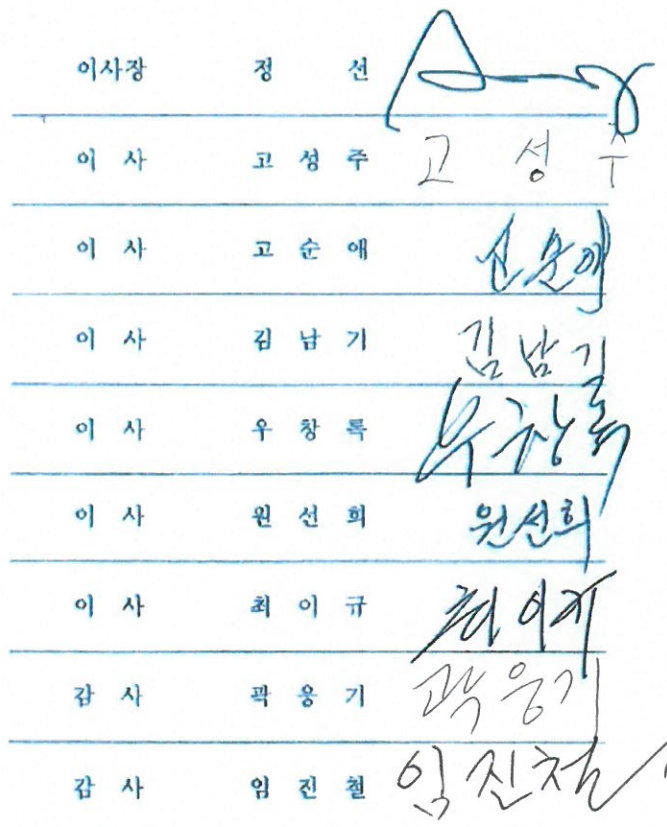 이사장 정 선
이 사 고 성 주 고 성 주
이 사 고 순 애
이 사 김 남 기 김 남 기
이 사 우 창 록 우 창 록
이 사 원 선 희 원선희
이 사 최 이 규 최이규
감 사 곽 웅 기 곽웅기
감 사 임 진 철 임진철